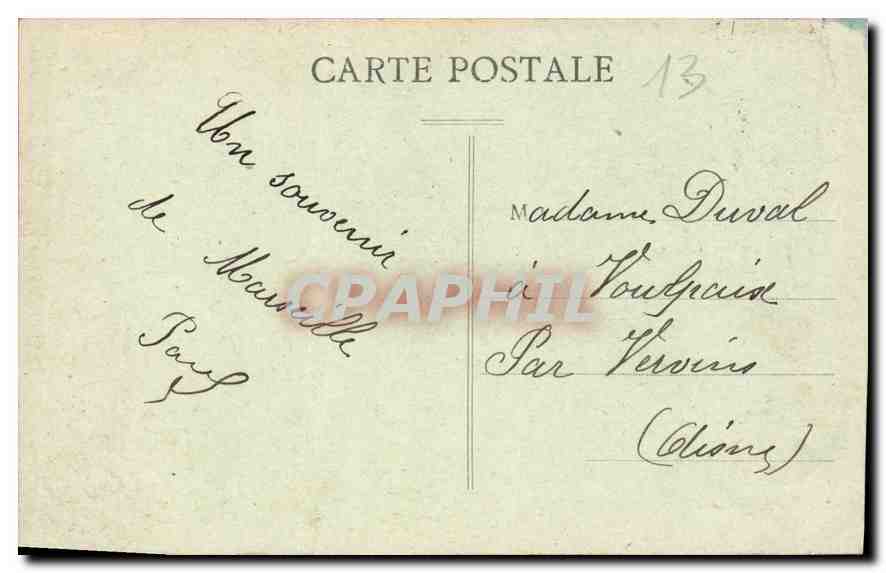 CARTE POSTALE
13
Un souvenir
de Marseille
Paul
Madame Duval
à Voulpaix
Par Vervins
(Aisne)
CPAPHIL